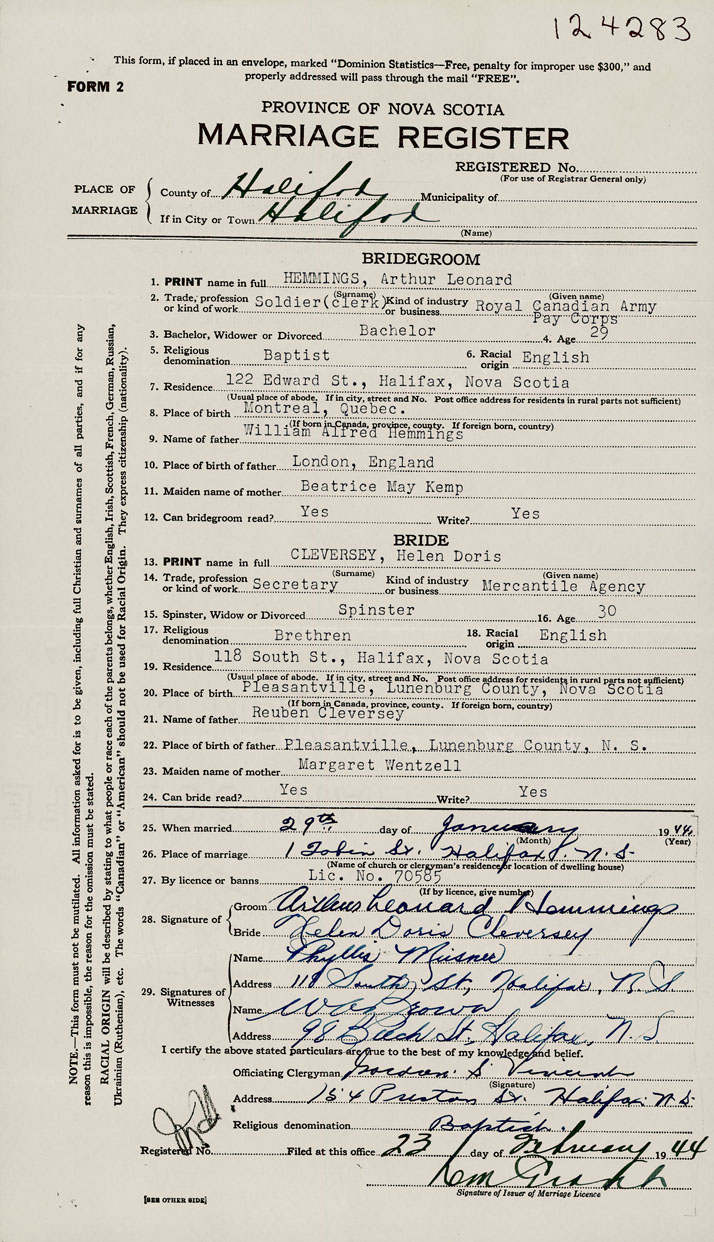 124283
This form, if placed in an envelope, marked "Dominion Statistics—Free, penalty for improper use $300," and
properly addressed will pass through the mail "FREE".
FORM 2
PROVINCE OF NOVA SCOTIA
MARRIAGE REGISTER
REGISTERED No.
(For use of Registrar General only)
PLACE OF MARRIAGE
County of Halifax Municipality of
If in City or Town Halifax
(Name)
BRIDEGROOM
1. PRINT name in full HEMMINGS, Arthur Leonard
(Surname) (Given name)
2. Trade, profession or kind of work Soldier(clerk) Kind of industry or business Royal Canadian Army Pay Corps
3. Bachelor, Widower or Divorced Bachelor 4. Age 29
5. Religious denomination Baptist 6. Racial origin English
7. Residence 122 Edward St., Halifax, Nova Scotia
(Usual place of abode. If in city, street and No. Post office address for residents in rural parts not sufficient)
8. Place of birth Montreal, Quebec.
(If born in Canada, province, county. If foreign born, country)
9. Name of father William Alfred Hemmings
10. Place of birth of father London, England
11. Maiden name of mother Beatrice May Kemp
12. Can bridegroom read? Yes Write? Yes
BRIDE
13. PRINT name in full CLEVERSEY, Helen Doris
(Surname) (Given name)
14. Trade, profession or kind of work Secretary Kind of industry or business Mercantile Agency
15. Spinster, Widow or Divorced Spinster 16. Age 30
17. Religious denomination Brethren 18. Racial origin English
19. Residence 118 South St., Halifax, Nova Scotia
(Usual place of abode. If in city, street and No. Post office address for residents in rural parts not sufficient)
20. Place of birth Pleasantville, Lunenburg County, Nova Scotia
(If born in Canada, province, county. If foreign born, country)
21. Name of father Reuben Cleversey
22. Place of birth of father Pleasantville, Lunenburg County, N. S.
23. Maiden name of mother Margaret Wentzell
24. Can bride read? Yes Write? Yes
25. When married 29th day of January 1944
(Month) (Year)
26. Place of marriage 1 Tobin St. Halifax, N.S.
(Name of church or clergyman's residence or location of dwelling house)
27. By licence or banns Lic. No. 70585
(If by licence, give number)
28. Signature of
Groom Arthur Leonard Hemmings
Bride Helen Doris Cleversey
29. Signatures of Witnesses
Name Phyllis Meisner
Address 118 South St, Halifax, N.S.
Name
Address 98 Beech St, Halifax, N.S
I certify the above stated particulars are true to the best of my knowledge and belief.
Officiating Clergyman Gordon S. Vincent
(Signature)
Address 154 Preston St. Halifax N.S.
Religious denomination Baptist.
Registered No. Filed at this office 23 day of February 1944
Signature of Issuer of Marriage Licence
[SEE OTHER SIDE]
NOTE.—This form must not be mutilated. All information asked for is to be given, including full Christian and surnames of all parties, and if for any
reason this is impossible, the reason for the omission must be stated.
RACIAL ORIGIN will be described by stating to what people or race each of the parents belongs, whether English, Irish, Scottish, French, German, Russian,
Ukrainian (Ruthenian), etc. The words "Canadian" or "American" should not be used for Racial Origin. They express citizenship (nationality).